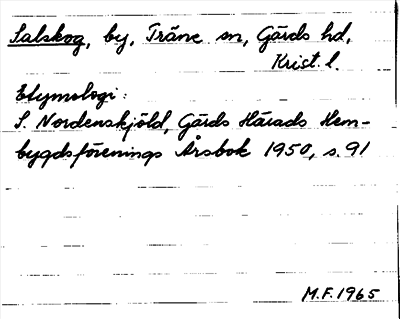 Salskog, by, Träne sn, Gärds hd,
Krist. l.
Etymologi:
S. Nordenskjöld, Gärds Härads Hem-
bygdsförenings Årsbok 1950, s. 91
M.F. 1965